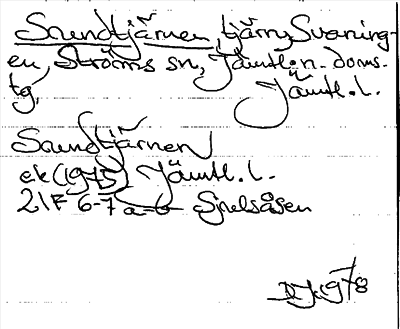 Sundtjärnen tjärn, Svaning-
en, Ströms sn, Jämtl. n. doms-
tg, Jämtl. l.
Sundtjärnen
ek (1975) Jämtl. l.
21F 6-7 a-b Sjulsåsen
1978